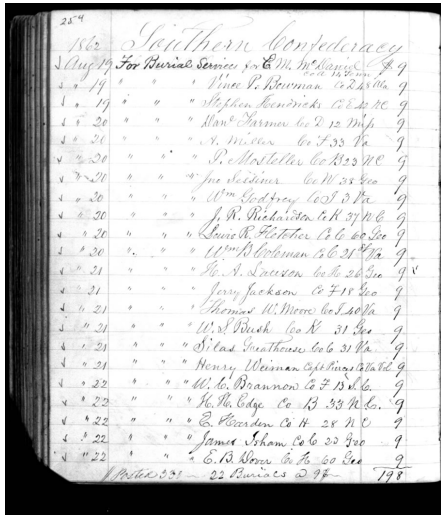 254
1862 Southern Confederacy
Aug 19 For Burial Service for E. M. McDaniel $ 9
Co A 14 Tenn
" 19 " " " Vince P. Bowman Co D 48 Va 9
" 19 " " " Stephen Hendricks Co E 43 NC 9
" 20 " " " Danl Farmer Co D 12 Miss 9
" 20 " " " A. Miller Co F 33 Va 9
" 20 " " " P. Mosteller Co B 23 NC 9
" 20 " " " Jno Co K 38 Geo 9
" 20 " " " Wm Godfrey Co I 3 Va 9
" 20 " " " J. R. Richardson Co K 37 N.C. 9
" 20 " " " Lewis R. Fletcher Co C 60 Geo 9
" 20 " " " Wm B Coleman Co C 21st Va 9
" 21 " " " H. A. Co H 26 Geo 9
" 21 " " " Jerry Jackson Co F 18 Geo 9
" 21 " " " Thomas W. Moore Co I 40 Va 9
" 21 " " " W. S. Bush Co K 31 Geo 9
" 21 " " " Silas Greathouse Co C 31 Va 9
" 21 " " " Henry Weiman Capt Co Va Vol 9
" 22 " " " W. C. Brannon Co F 13 S.C. 9
" 22 " " " H. H. Edge Co B 33 N.C. 9
" 22 " " " E. Harden Co H 28 NC 9
" 22 " " " James Isham Co C 22 Geo 9
" 22 " " " E. B. Dover Co H 60 Geo 9
Posted 330 22 Burials @ 9 198